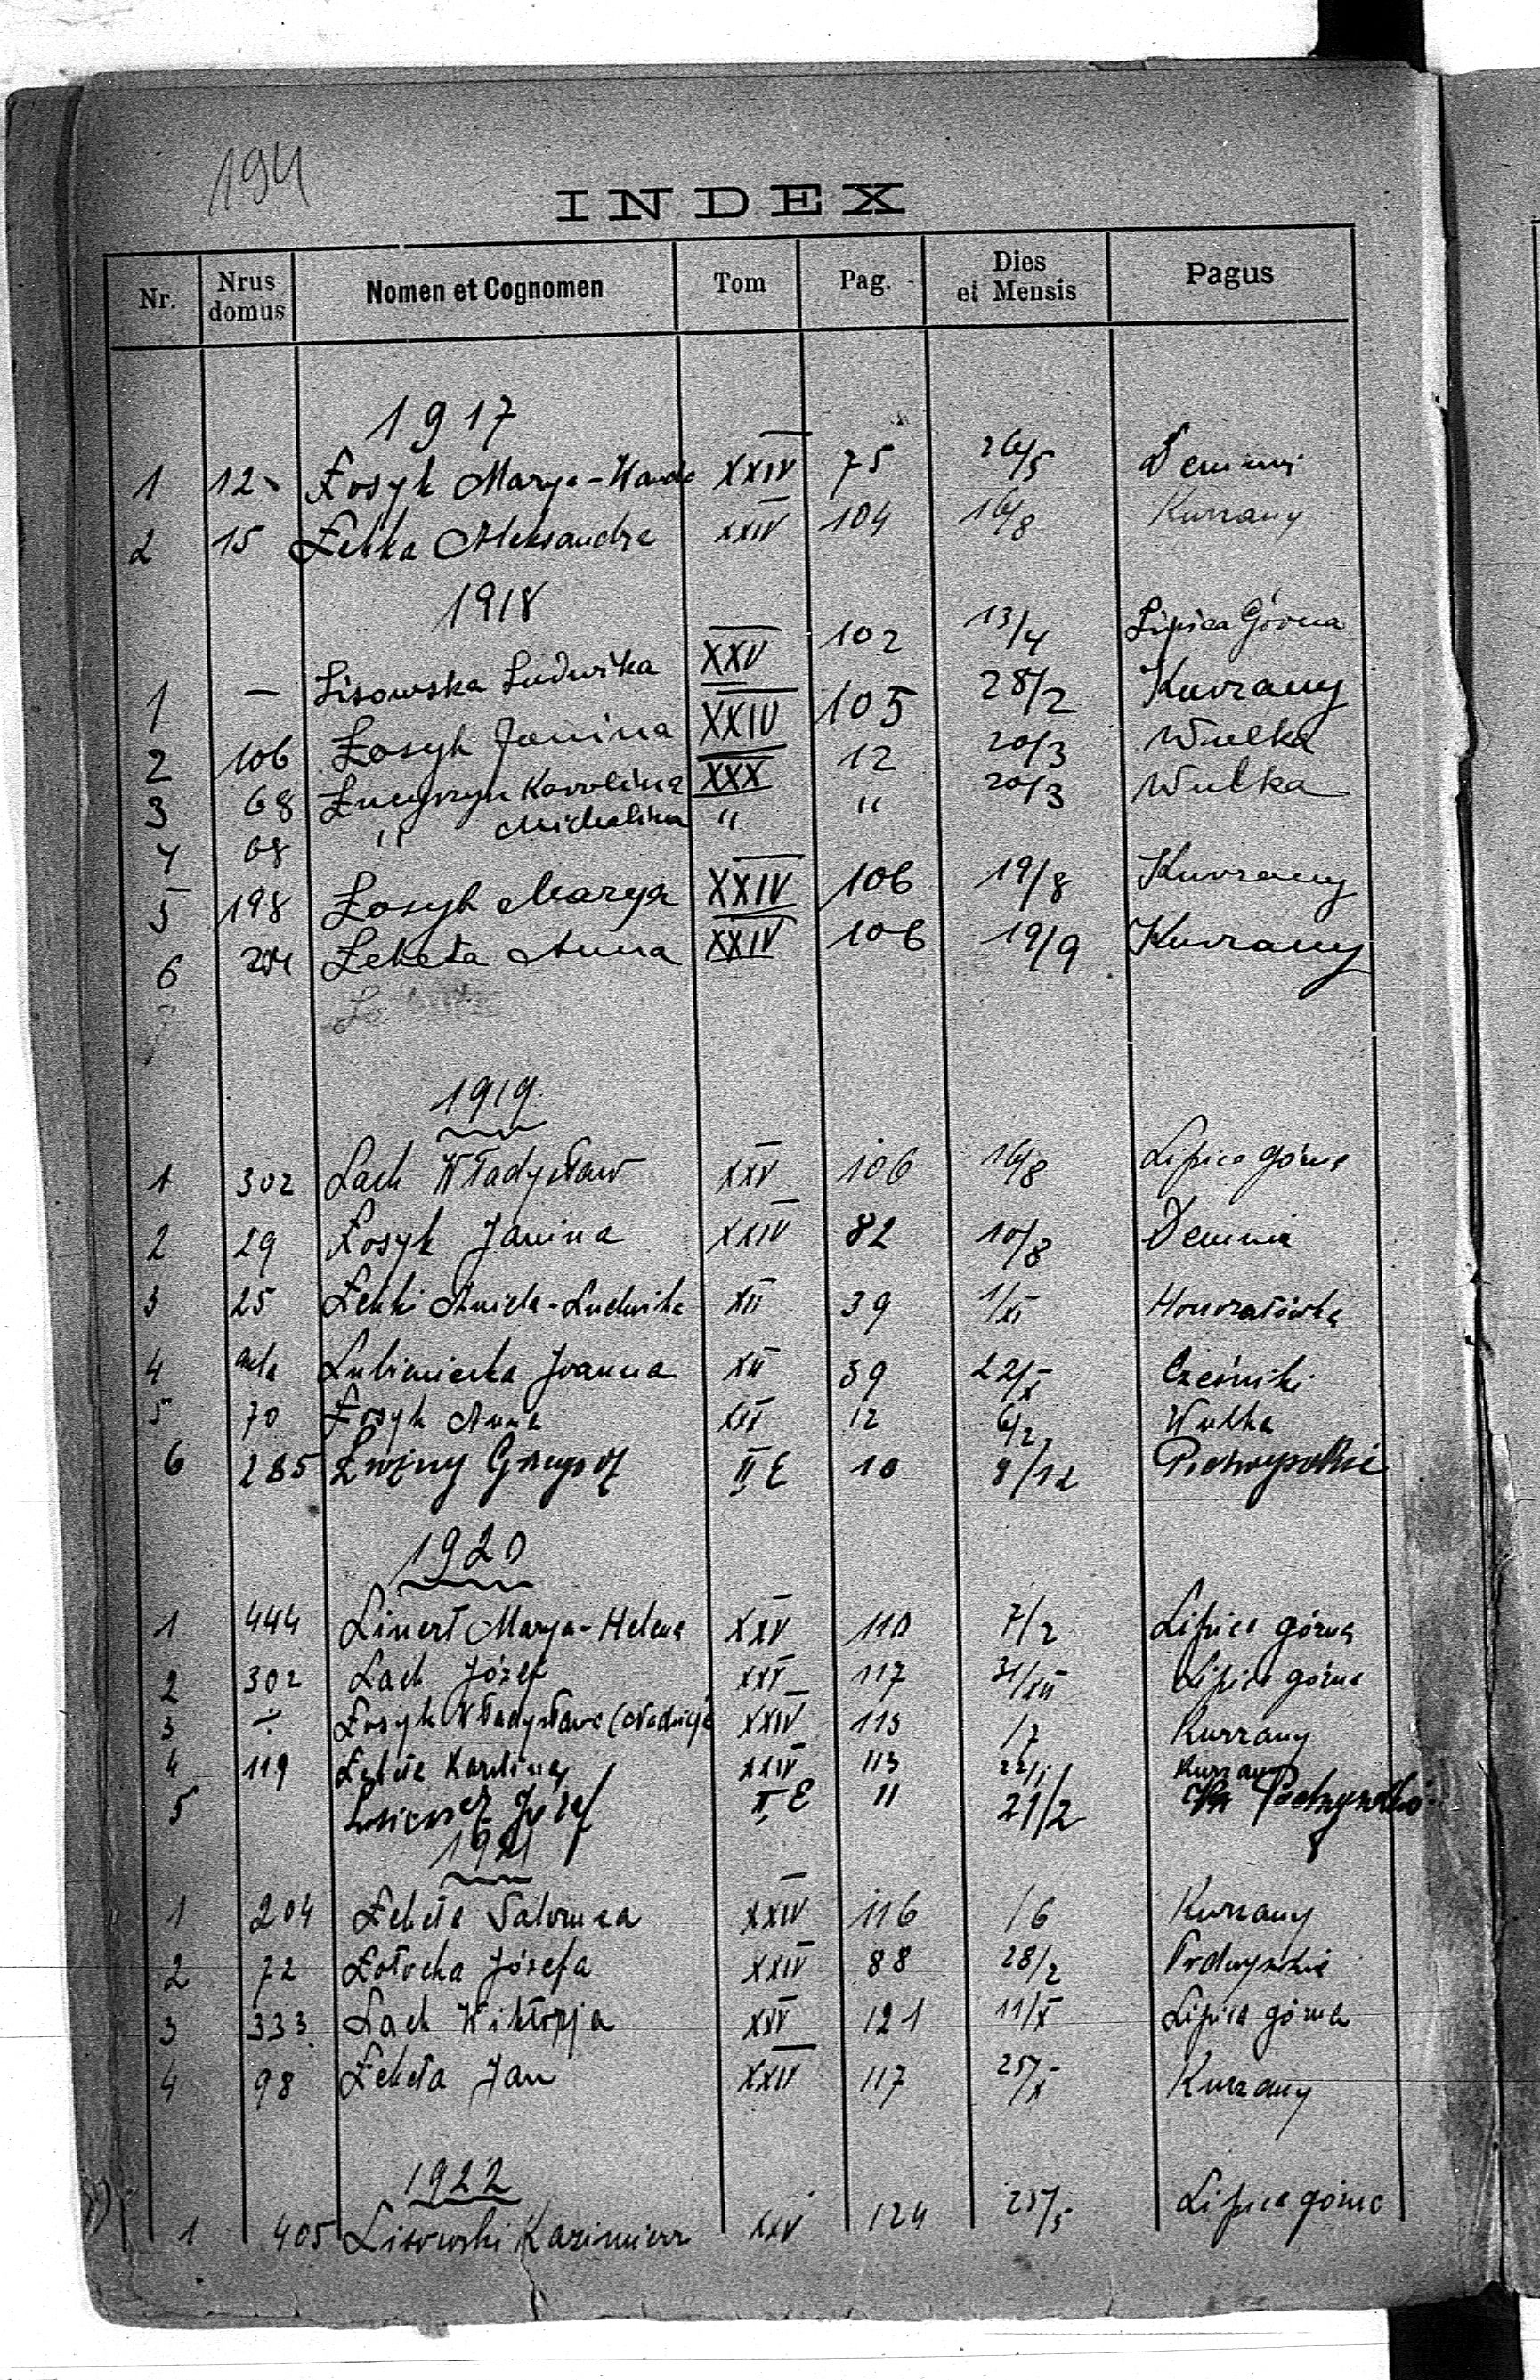 194
INDEX
Nr. Nrus domus Nomen et Cognomen Tom Pag. Dies et Mensis Pagus
1917
1 12 Łosyk Marya-Wanda XXIV 75 26/5 Demnia
2 15 Łekka Aleksandra XXIV 104 16/8 Kurzany
1918
1 — Lisowska Ludwika XXV 102 13/4 Lipica Górna
2 106 Łosyk Janina XXIV 105 28/2 Kurzany
3 68 Karolina XXX 12 20/3 Wulka
4 68 " Michalina " " 20/3 Wulka
5 198 Łosyk Marya XXIV 106 19/8 Kurzany
6 204 Łeketa Anna XXIV 106 19/9 Kurzany
1919
1 302 Lach Władysław XXV 106 16/8 Lipica górna
2 29 Łosyk Janina XXIV 82 10/8 Demnia
3 25 Łekki Aniela-Ludwika XII 39 1/XI Honoratówka
4 Lubieniecka Joanna XII 39 22/X Cześniki
5 70 Łosyk Anna XXX 12 6/2 Wulka
6 285 Grzegorz II E 10 9/12
1920
1 444 Linert Marya-Helena XXV 110 7/2 Lipica górna
2 302 Lach Józef XXV 117 31/XII Lipica górna
3 ÷ Łosyk Władysława XXIV 113 /7 Kurzany
4 119 Łeketa Karolina XXIV 113 22/1 Kurzany
5 Józef II E 11 21/2
1921
1 204 Łeketa Salomea XXIV 116 /6 Kurzany
2 72 Łotocka Józefa XXIV 88 28/2
3 333 Lach Wiktorja XXV 121 11/X Lipica górna
4 98 Łeketa Jan XXIV 117 25/X Kurzany
1922
1 405 Lisowski Kazimierz XXV 124 25/5 Lipica górna